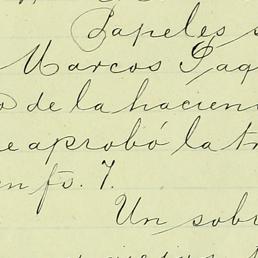 Papeles s
Marcos Paq
o de la hacien
e aprobó la tr
en fs. 7.
Un sobr